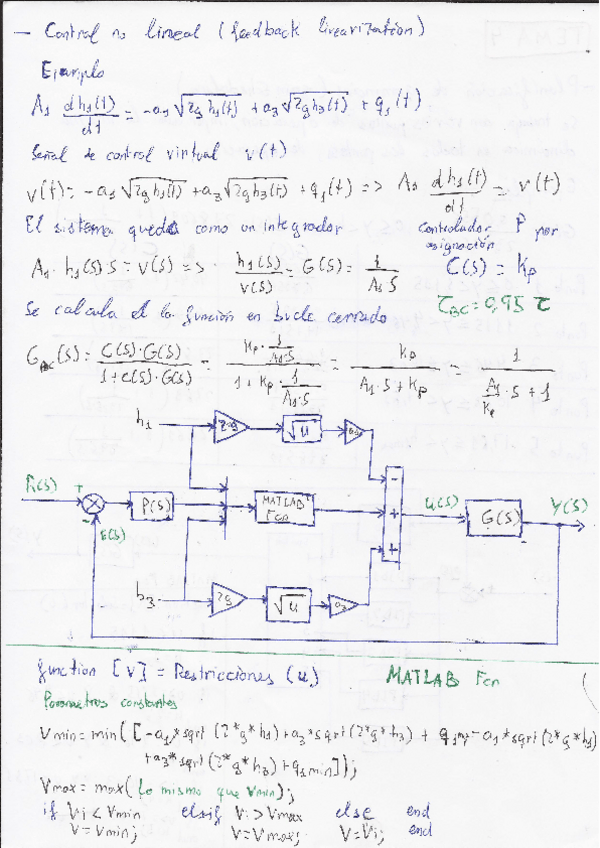 - Control no lineal (feedback linearization)
Ejemplo
A1 dh1(t)/dt = -a1√2gh1(t) + a3√2gh3(t) + q1(t)
Señal de control virtual v(t)
v(t) = -a1√2gh1(t) + a3√2gh3(t) + q1(t) => A1 dh1(t)/dt = v(t)
El sistema queda como un integrador
controlador P por
asignación
A1·h1(s)·s = v(s) => h1(s)/v(s) = G(s) = 1/A1·s
C(s) = Kp
τBC = 0,95 τ
Se calcula la función en bucle cerrado
GBC(s) = C(s)·G(s)/1+C(s)·G(s) = Kp·1/A1·s / 1+Kp·1/A1·s = Kp/A1·s+Kp = 1/A1/Kp·s+1
h1 2g √u
R(s) + - E(s) P(s) MATLAB Fcn - + + u(s) G(s) Y(s)
h3 2g √u a3
function [v] = Restricciones (u)
MATLAB Fcn
Parametros constantes
Vmin = min([-a1*sqrt(2*g*h1)+a3*sqrt(2*g*h3) + -a1*sqrt(2*g*h1)
+a3*sqrt(2*g*h3)+q1min]);
Vmax = max(lo mismo que Vmin);
if Vi < Vmin elsif Vi > Vmax else end
V = Vmin; V = Vmax; V = Vi; end